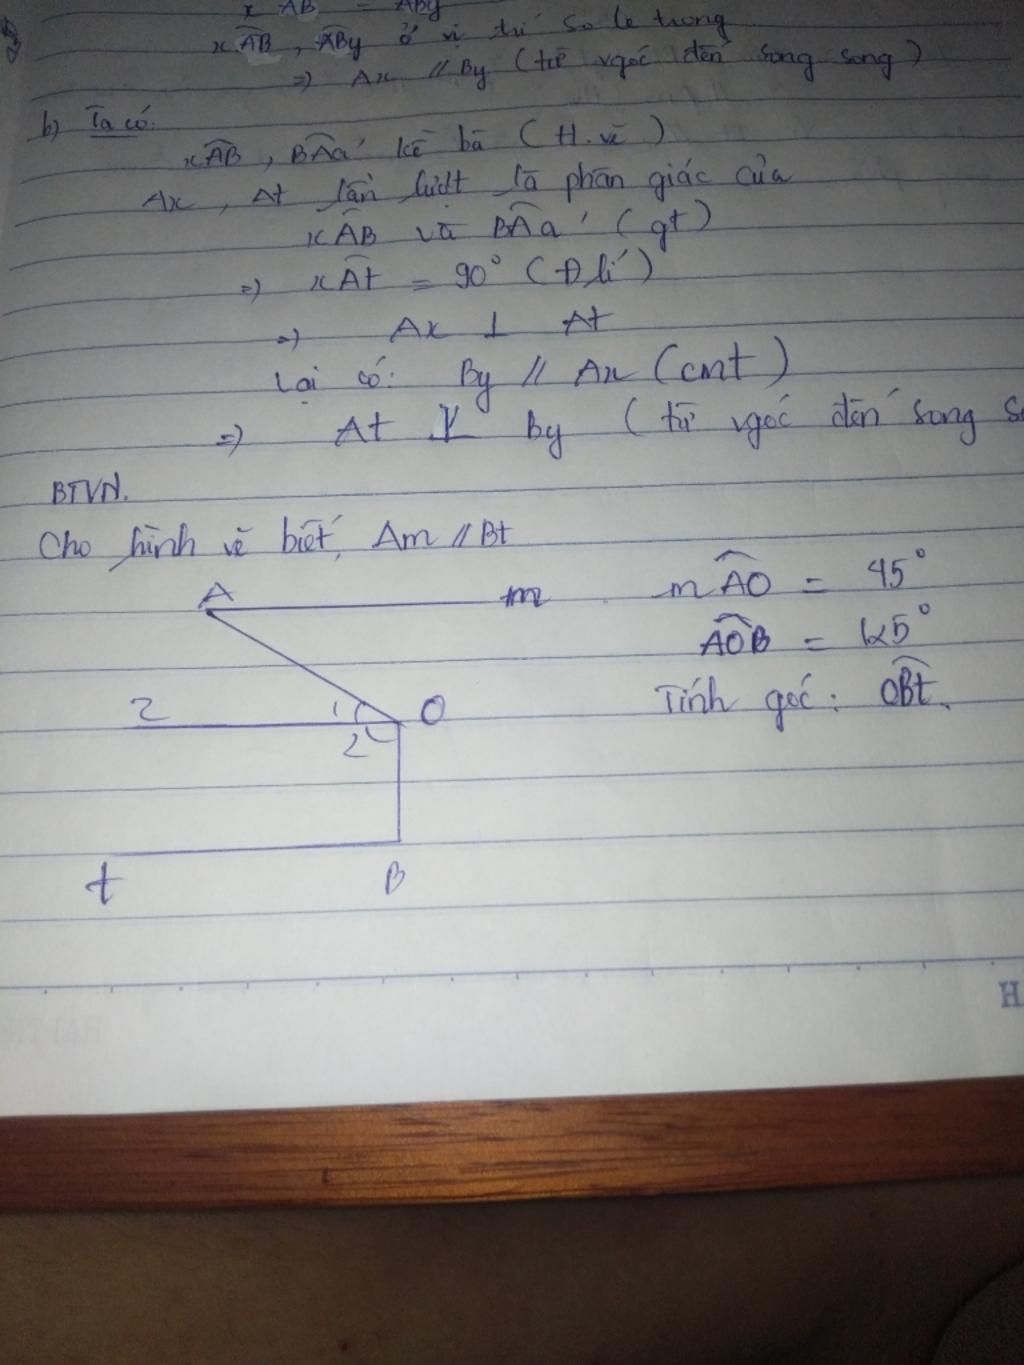 x AB = ABy
xAB, ABy ở vị trí so le trong
=) Ax // By (từ vgóc đến song song)
b) Ta có:
xAB, BAa' kề bù (H.vẽ)
Ax, At lần lượt là phân giác của
xAB và BAa' (gt)
=) xAt = 90° (Đlí)
=) Ax ⊥ At
Lại có: By // Ax (cmt)
=) At ⊥ By (từ vgóc đến song s
BTVN.
Cho hình vẽ biết, Am // Bt
A m mAO = 45°
AOB = 125°
z 1 O Tính góc: OBt.
2
t B
H